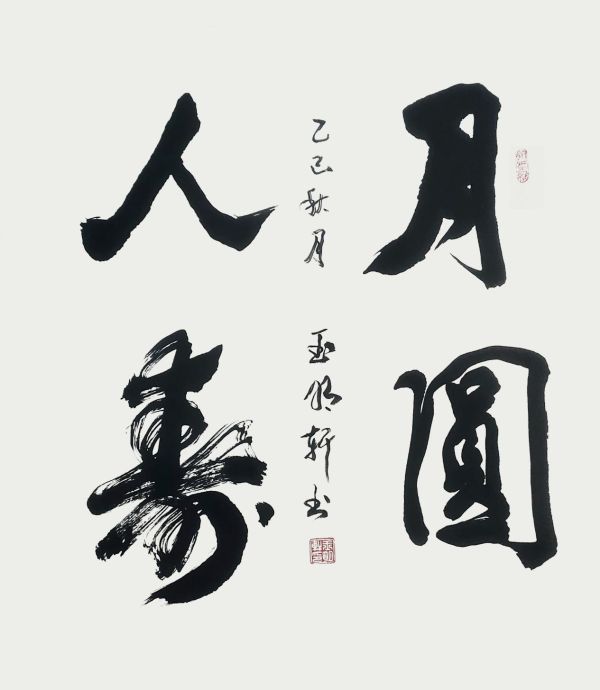 月圓
人壽
乙巳秋月
玉明軒书